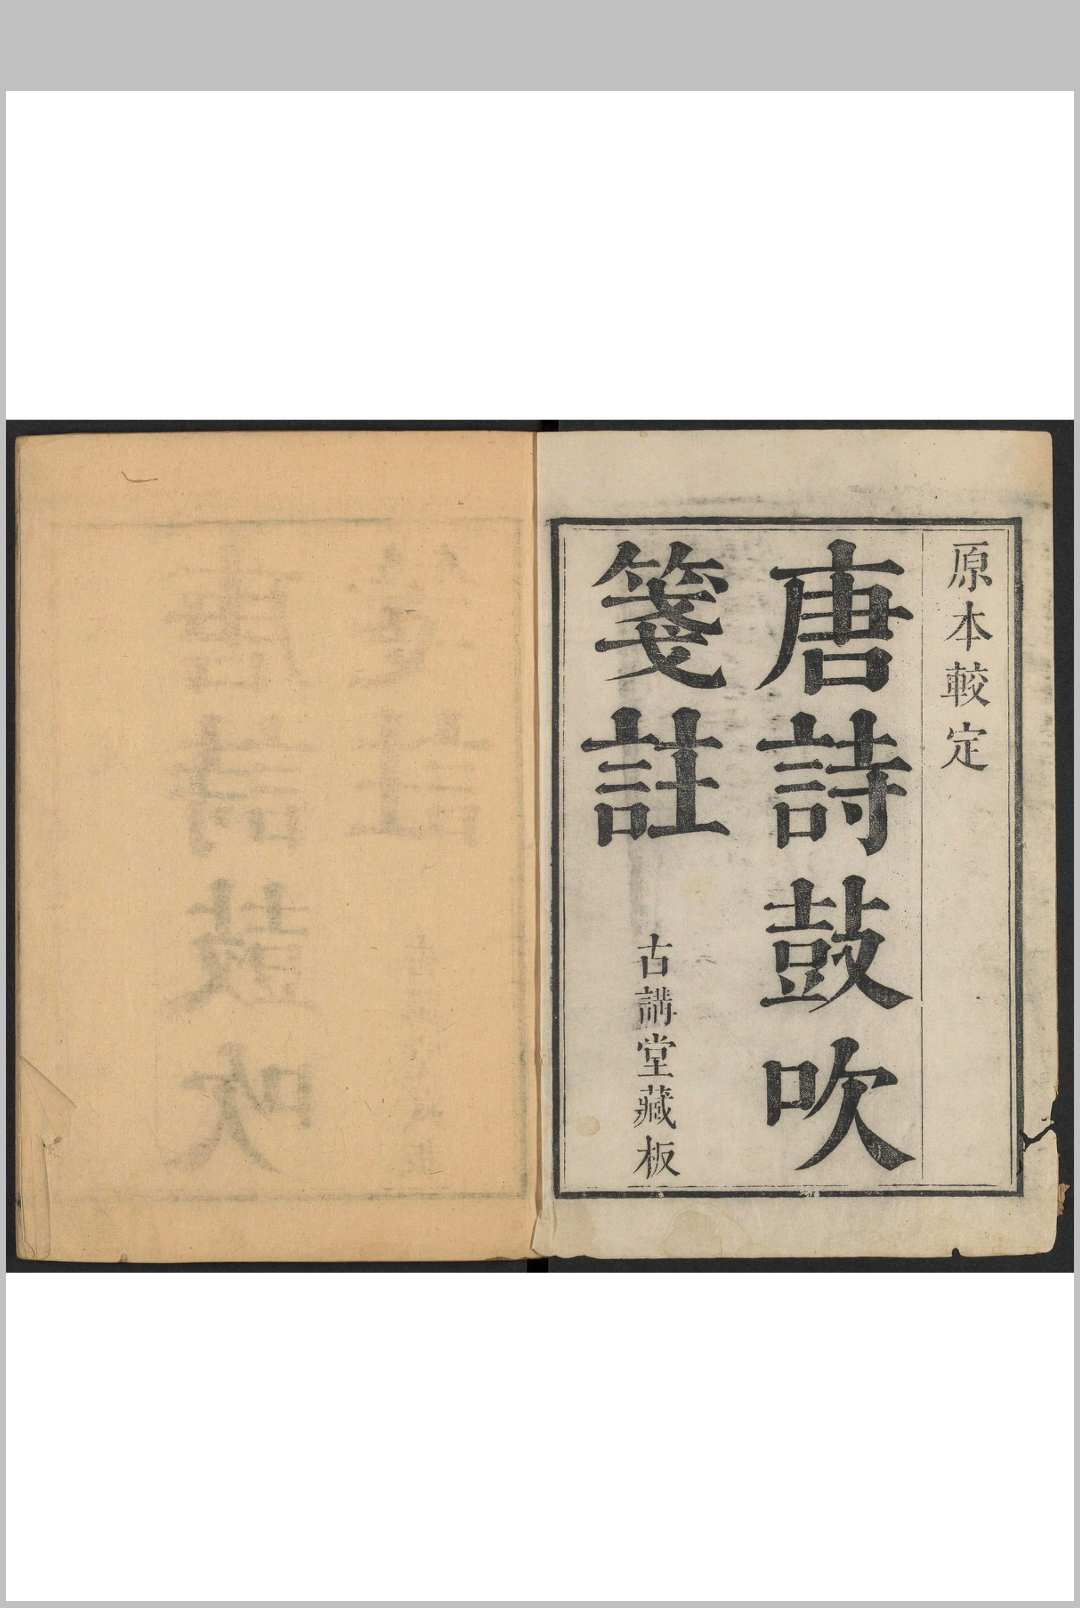 原本較定
唐詩鼓吹
箋註
古講堂藏板